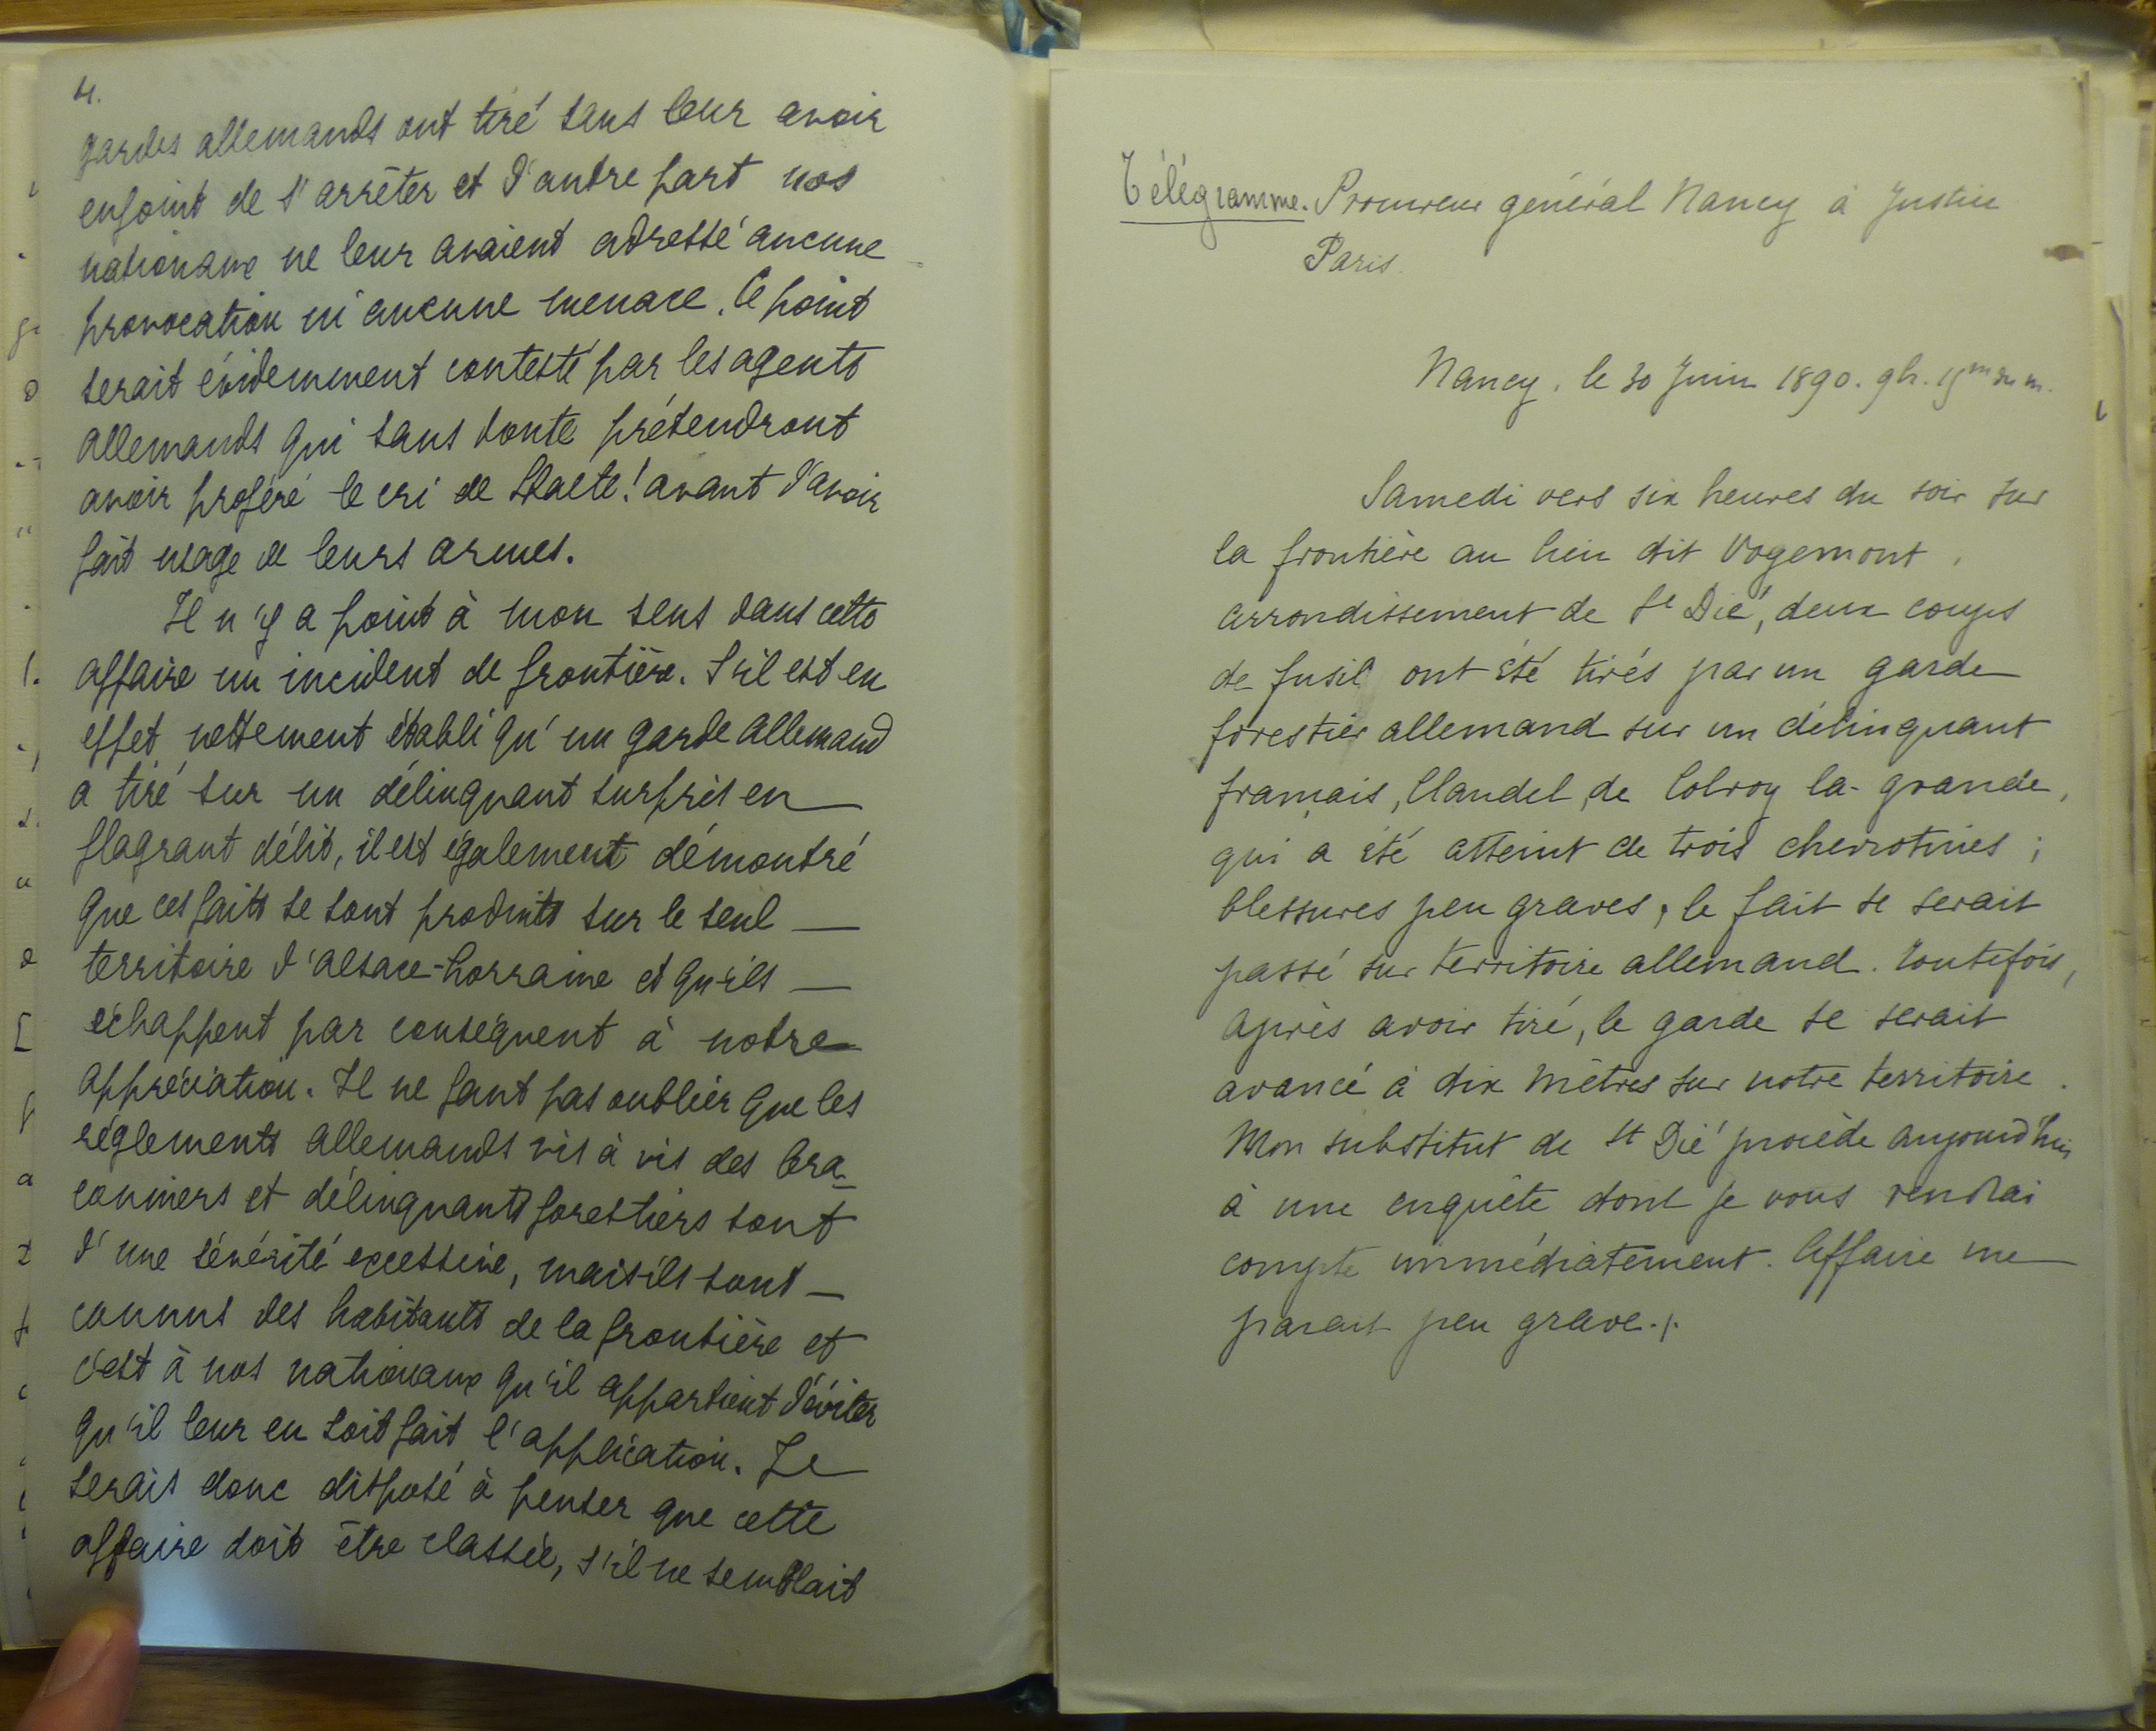 4.
gardes allemands ont tiré sans leur avoir
enjoint de s'arrêter et d'autre part nos
nationaux ne leur avaient adressé aucune
provocation ni aucune menace. Ce point
serait évidemment contesté par les agents
allemands qui sans doute prétendront
avoir proféré le cri de Halte! avant d'avoir
fait usage de leurs armes.
Il n'y a point à mon sens dans cette
affaire un incident de frontière. S'il est en
effet nettement établi qu'un garde allemand
a tiré sur un délinquant surpris en
flagrant délit, il est également démontré
que ces faits se sont produits sur le seul
territoire d'Alsace-Lorraine et qu'ils
échappent par conséquent à notre
appréciation. Il ne faut pas oublier que les
règlements allemands vis à vis des bra-
conniers et délinquants forestiers sont
d'une sévérité excessive, mais ils sont
connus des habitants de la frontière et
c'est à nos nationaux qu'il appartient d'éviter
qu'il leur en soit fait l'application. Je
serais donc disposé à penser que cette
affaire doit être classée, s'il ne semblait
Télégramme. Procureur général Nancy à Justice
Paris.
Nancy, le 30 Juin 1890. 9h. 15m du m.
Samedi vers six heures du soir sur
la frontière au lieu dit Vogemont,
arrondissement de St Dié, deux coups
de fusil ont été tirés par un garde
forestier allemand sur un délinquant
français, Claudel, de Colroy la-grande,
qui a été atteint de trois chevrotines;
blessures peu graves, le fait se serait
passé sur territoire allemand. Toutefois,
après avoir tiré, le garde se serait
avancé à dix mètres sur notre territoire.
Mon substitut de St Dié procède aujourd'hui
à une enquête dont je vous rendrai
compte immédiatement. Affaire me
parait peu grave./.